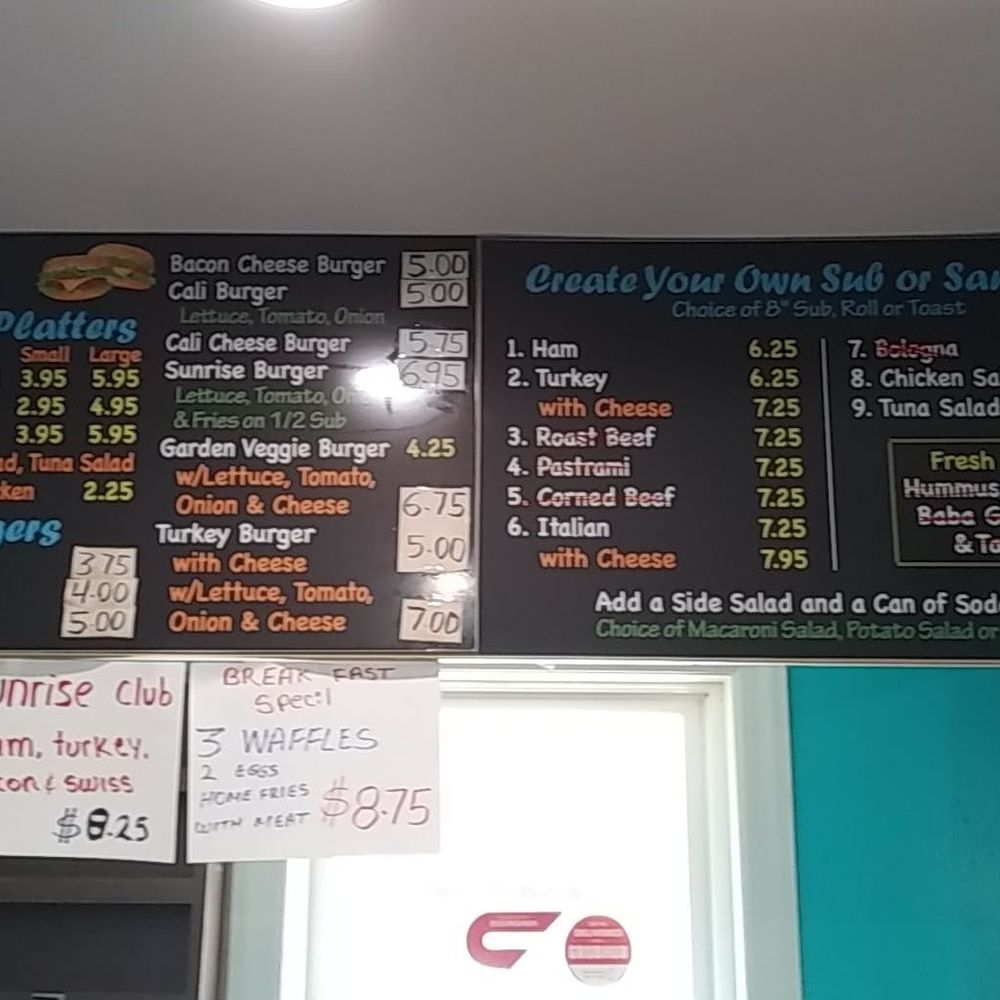 Platters
Small Large
3.95 5.95
2.95 4.95
3.95 5.95
Tuna Salad
2.25
3.75
4.00
5.00
Bacon Cheese Burger 5.00
Cali Burger 5.00
Lettuce, Tomato, Onion
Cali Cheese Burger 5.75
Sunrise Burger 6.95
Lettuce, Tomato,
& Fries on 1/2 Sub
Garden Veggie Burger 4.25
w/Lettuce, Tomato,
Onion & Cheese 6.75
Turkey Burger
with Cheese 5.00
w/Lettuce, Tomato,
Onion & Cheese 7.00
Create Your Own Sub or
Choice of 8" Sub, Roll or Toast
1. Ham 6.25
2. Turkey 6.25
with Cheese 7.25
3. Roast Beef 7.25
4. Pastrami 7.25
5. Corned Beef 7.25
6. Italian 7.25
with Cheese 7.95
7. Bologna
8. Chicken
9. Tuna Salad
Fresh
Hummus
Baba
&
Add a Side Salad and a Can of
Choice of Macaroni Salad, Potato Salad or
Club
turkey.
& swiss
$8.25
BREAK FAST
Spec:l
3 WAFFLES
2 EGGS
HOME FRIES
WITH MEAT $8.75